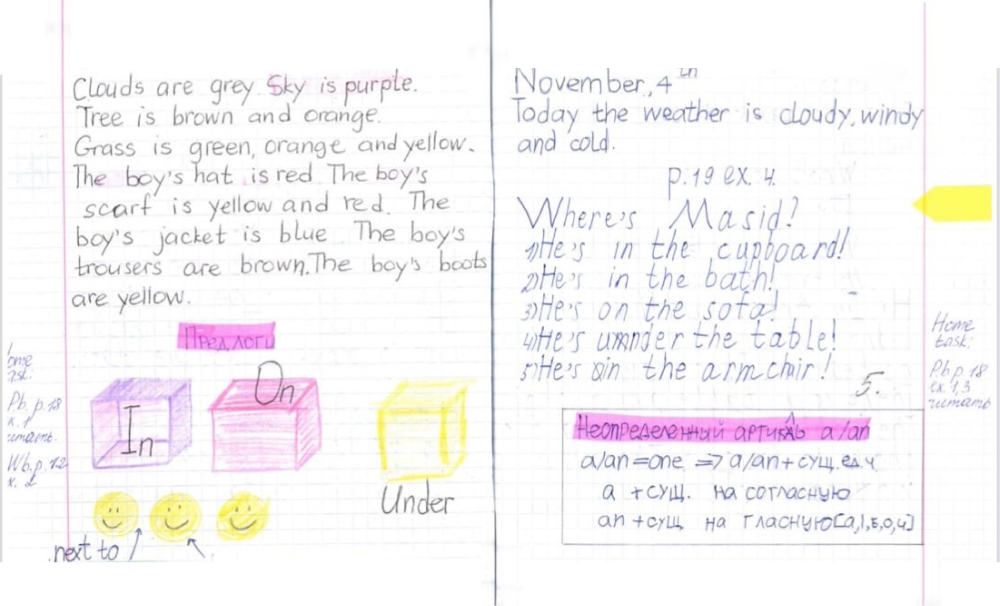 Clouds are grey. Sky is purple.
Tree is brown and orange.
Grass is green, orange and yellow.
The boy's hat is red. The boy's
scarf is yellow and red. The
boy's jacket is blue The boy's
trousers are brown. The boy's boots
are yellow.
Предлоги
ome
Pb. p. 18
читать.
Wb. p. 12
In
On
Under
next to
November, 4th
Today the weather is cloudy, windy
and cold.
p. 19 ex. 4.
Where's Masid?
1) He's in the cupboard!
2) He's in the bath!
3) He's on the sofa!
4) He's under the table!
5) He's in the armchair!
5.
Home
task:
Pb p. 18
ex. 1,3
читать
Неопределенный артикль a/an
a/an=one => a/an+ сущ. ед.ч
a + сущ. на согласную
an + сущ на гласную